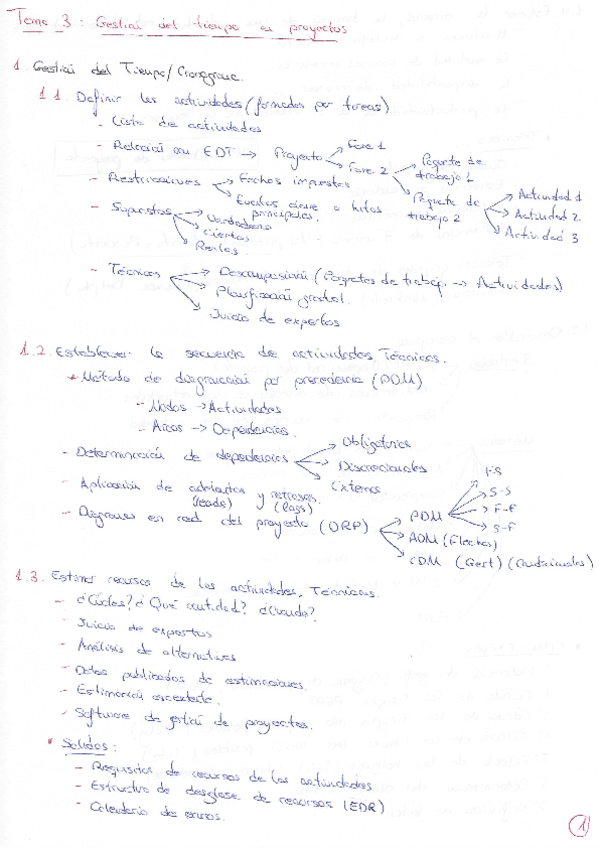 Tema 3: Gestión del tiempo en proyectos
1. Gestión del Tiempo/Cronograma.
1.1. Definir las actividades (formadas por tareas)
- Lista de actividades
- Relación con EDT → Proyecto
Fase 1
Fase 2
Paquete de trabajo 1
Paquete de trabajo 2
Actividad 1
Actividad 2
Actividad 3
- Restricciones
Fechas impuestas
Eventos clave o hitos principales.
- Supuestos
Verdaderos
Ciertos
Reales.
- Técnicas
Descomposición (Paquetes de trabajo → Actividades)
Planificación gradual.
Juicio de expertos
1.2. Establecer la secuencia de actividades. Técnicas.
* Método de diagramación por precedencia (PDM)
- Nodos → Actividades
- Arcos → Dependencias.
- Determinación de dependencias
Obligatorias
Discrecionales
Externas
- Aplicación de adelantos y retrasos.
(leads) (lags)
- Diagramas en red del proyecto (DRP)
PDM
F-S
S-S
F-F
S-F
ADM (Flechas)
CDM (Gert) (Condicionales)
1.3. Estimar recursos de las actividades. Técnicas.
- ¿Cuáles? ¿Qué cantidad? ¿Cuándo?
- Juicio de expertos
- Análisis de alternativas
- Datos publicados de estimaciones.
- Estimación ascendente.
- Software de gestión de proyectos.
* Salidas:
- Requisitos de recursos de las actividades
- Estructura de desglose de recursos (EDR)
- Calendario de
1